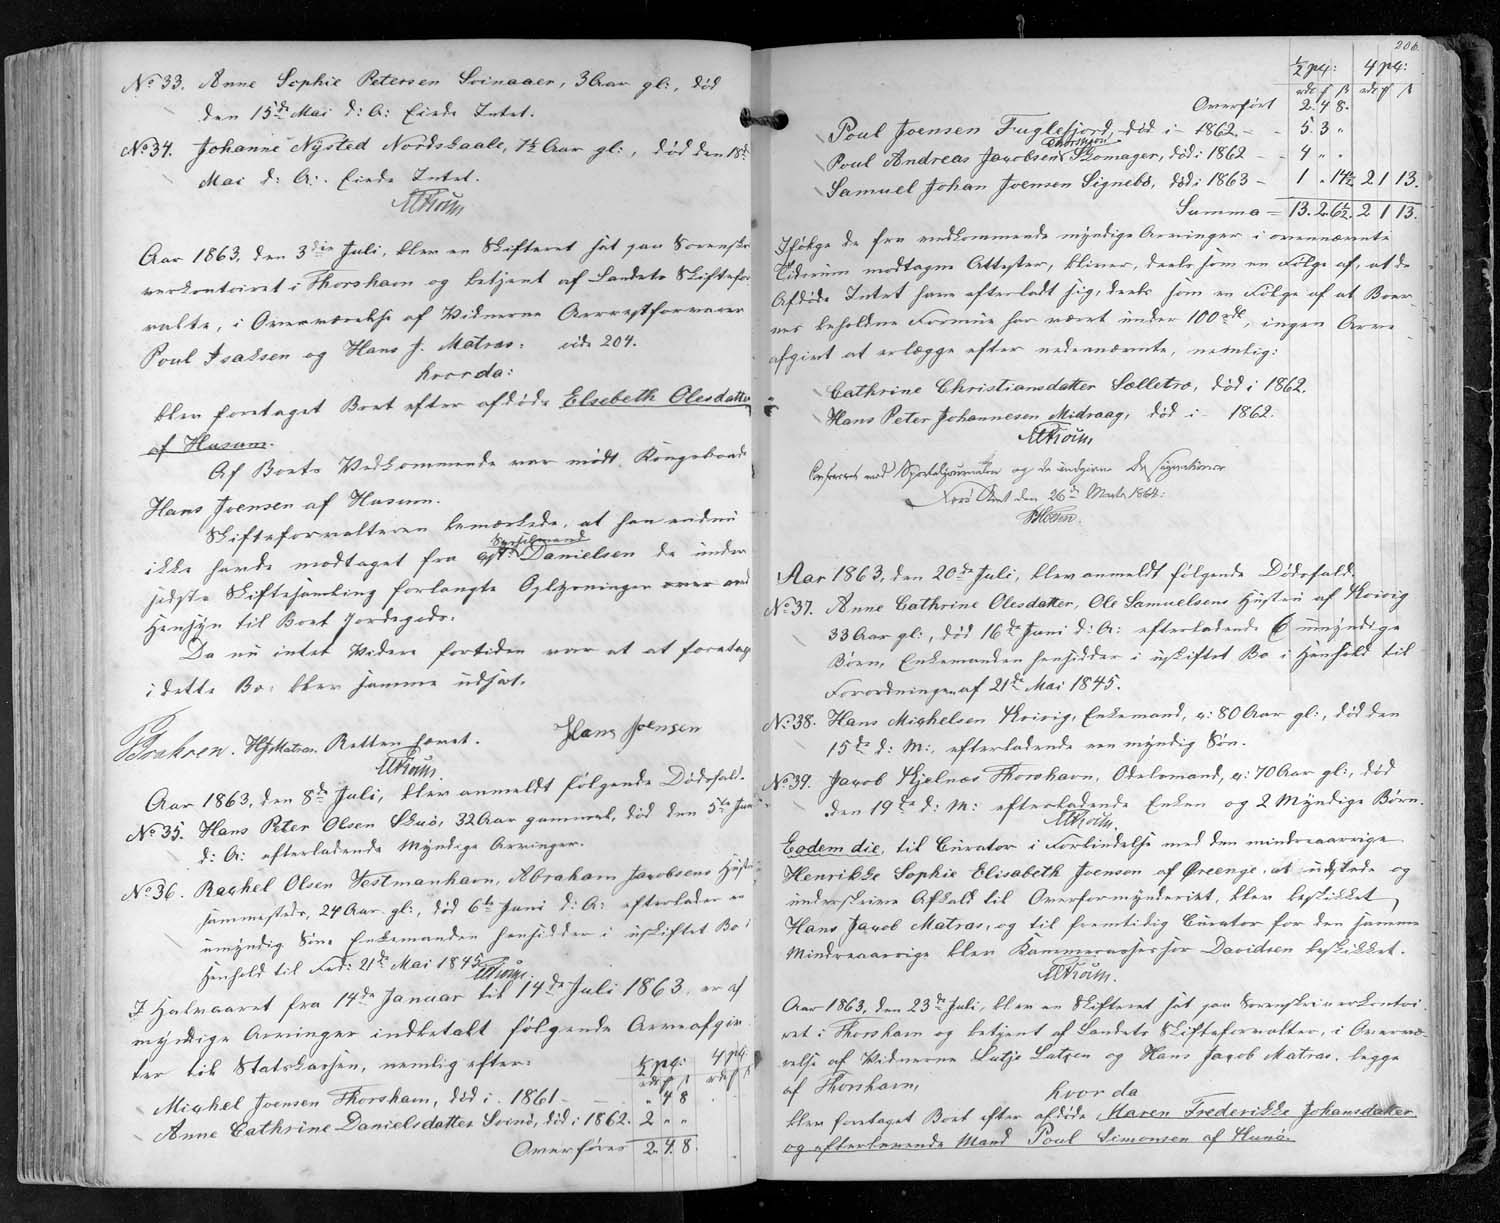 No 33. Anne Sophie Petersen Svinaaer, 3 Aar gl:, død
den 15de Mai d: A: Eiede Intet.
No 34. Johanne Nysted Nordskaale, 1½ Aar gl:, død den 18de
Mai d: A: Eiede Intet.
Aar 1863, den 3die Juli, blev en Skifteret sat paa Sorenskri
verkontoiret i Thorshavn og betjent af Landets Skiftefor
valter, i Overværelse af Vidnerne Arrestforvarer
Poul Isaksen og Hans J. Matras. vide 204.
hvor da:
blev foretaget Boet efter afdøde Elsebeth Olesdatter
af Husum.
Af Boets Vedkommende var mødt Kongsbonde
Hans Joensen af Husum.
Skifteforvalteren bemærkede, at han endnu
ikke havde modtaget fra Sysselmand Danielsen de under
sidste Skiftesamling forlangte Oplysninger med
Hensyn til Boets Jordegods.
Da nu intet Videre fortiden var at foretage
i dette Bo, blev samme udsat.
Hans Joensen
P Isaksen. HJMatras. Retten hævet.
Aar 1863, den 8de Juli, blev anmeldt følgende Dødsfald.
No 35. Hans Peter Olsen Skuø, 32 Aar gammel, død den 5te Juni
d: A: efterladende Myndige Arvinger.
No 36. Rachel Olsen Vestmanhavn, Abraham Jacobsens Hustru
sammesteds, 24 Aar gl:, død 6te Juni d: A: efterlader en
umyndig Søn. Enkemanden hensidder i uskiftet Bo i
Henhold til Frd: 21de Mai 1845.
I Halvaaret fra 14de Januar til 14de Juli 1863, er af
myndige Arvinger indbetalt følgende Arveafgif
ter til Statskassen, nemlig efter:
½ pct: 4 pct:
rdl ƒ ß rdl ƒ ß
Michel Joensen Thorshavn, død i 1861 - " 4 8
Anne Cathrine Danielsdatter Svinø, død i 1862. 2 " "
Overføres 2. 4. 8.
206.
½ pct: 4 pct:
rdl ƒ ß rdl ƒ ß
Overført 2. 4 8.
Poul Joensen Fuglefjord, død i 1862 - 5. 3 "
Poul Andreas Jacobsen Thorshavn Skomager, død i 1862 - 4 " "
Samuel Johan Joensen Signebø, død i 1863 - 1 " 14½ 2 1 13.
Summa = 13. 2. 6½. 2 1 13.
Ifølge de fra vedkommende myndige Arvinger i ovennævnte
Tidsrum modtagne Attester, bliver, deels som en Følge af, at de
Afdøde Intet have efterladt sig, deels som en Følge af at Boer
nes beholdne Formue har været under 100 rdl, ingen Arve
afgivt at erlægge efter nedennævnte, nemlig:
Cathrine Christiansdatter Sælletræ, død i 1862.
Hans Peter Johannesen Midvaag, død i 1862.
Confereret med Sporteljournalen og de
Færø Amt den 26de Marts 1864.
Aar 1863, den 20de Juli, blev anmeldt følgende Dødsfald.
No 37. Anne Cathrine Olesdatter, Ole Samuelsens Hustru af Kvivig
33 Aar gl:, død 16de Juni d: A: efterladende 6 umyndige
Børn, Enkemanden hensidder i uskiftet Bo i Henhold til
Forordningen af 21de Mai 1845.
No 38. Hans Michelsen Kvivig, Enkemand, c: 80 Aar gl:, død den
15de d: M:, efterladende een myndig Søn.
No 39. Jacob Kjelnæs Thorshavn, Odelsmand, c: 70 Aar gl:, død
den 19de d: M: efterladende Enken og 2 Myndige Børn.
Eodem die, til Curator i Forbindelse med den mindreaarige
Henrikke Sophie Elisabeth Joensen af Øreenge, at udstede og
underskrive Afkald til Overformynderiet, blev beskikket
Hans Jacob Matras, og til fremtidig Curator for den samme
Mindreaarige blev Kammerassessor Davidsen beskikket.
Aar 1863, den 23de Juli, blev en Skifteret sat paa Sorenskriverkontoi
ret i Thorshavn og betjent af Landets Skifteforvalter, i Overvæ
relse af Vidnerne Lutje Lutzen og Hans Jacob Matras, begge
af Thorshavn,
hvor da
blev foretaget Boet efter afdøde Maren Frederikke Johansdatter
og efterlevende Mand Poul Simonsen af Kunø.